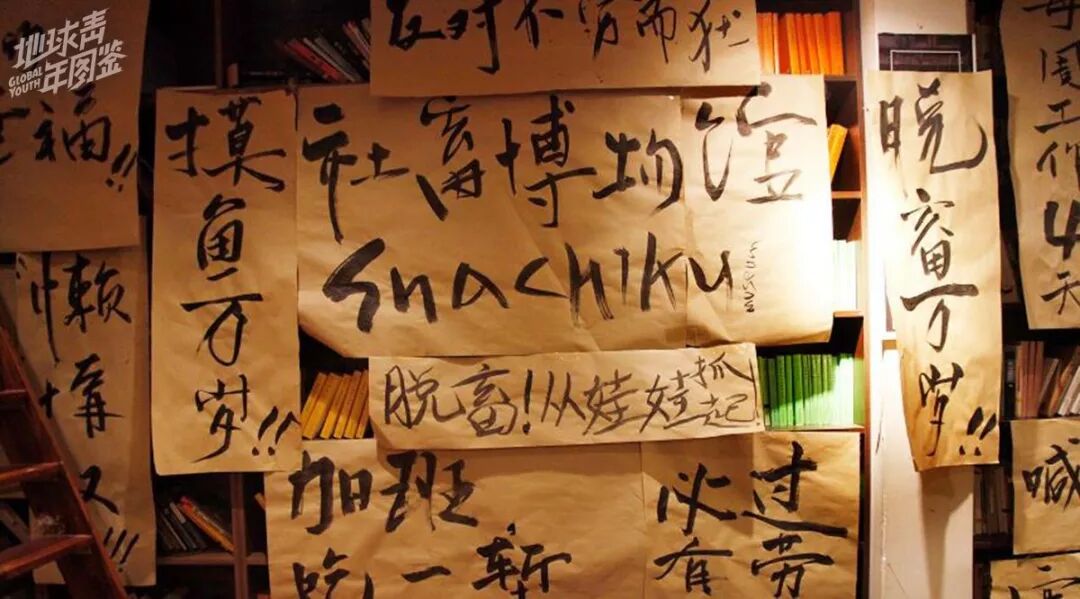 地球青
GLOBAL
YOUTH
年图鉴
反对不劳而获
福!!
摸鱼万岁!!
社畜博物馆
Shachiku
MUSEUM
脱畜万岁!!
每周工作4天
懒
又!!!
脱畜!从娃娃抓起!
加班
吃一堑
必过
有劳
喊